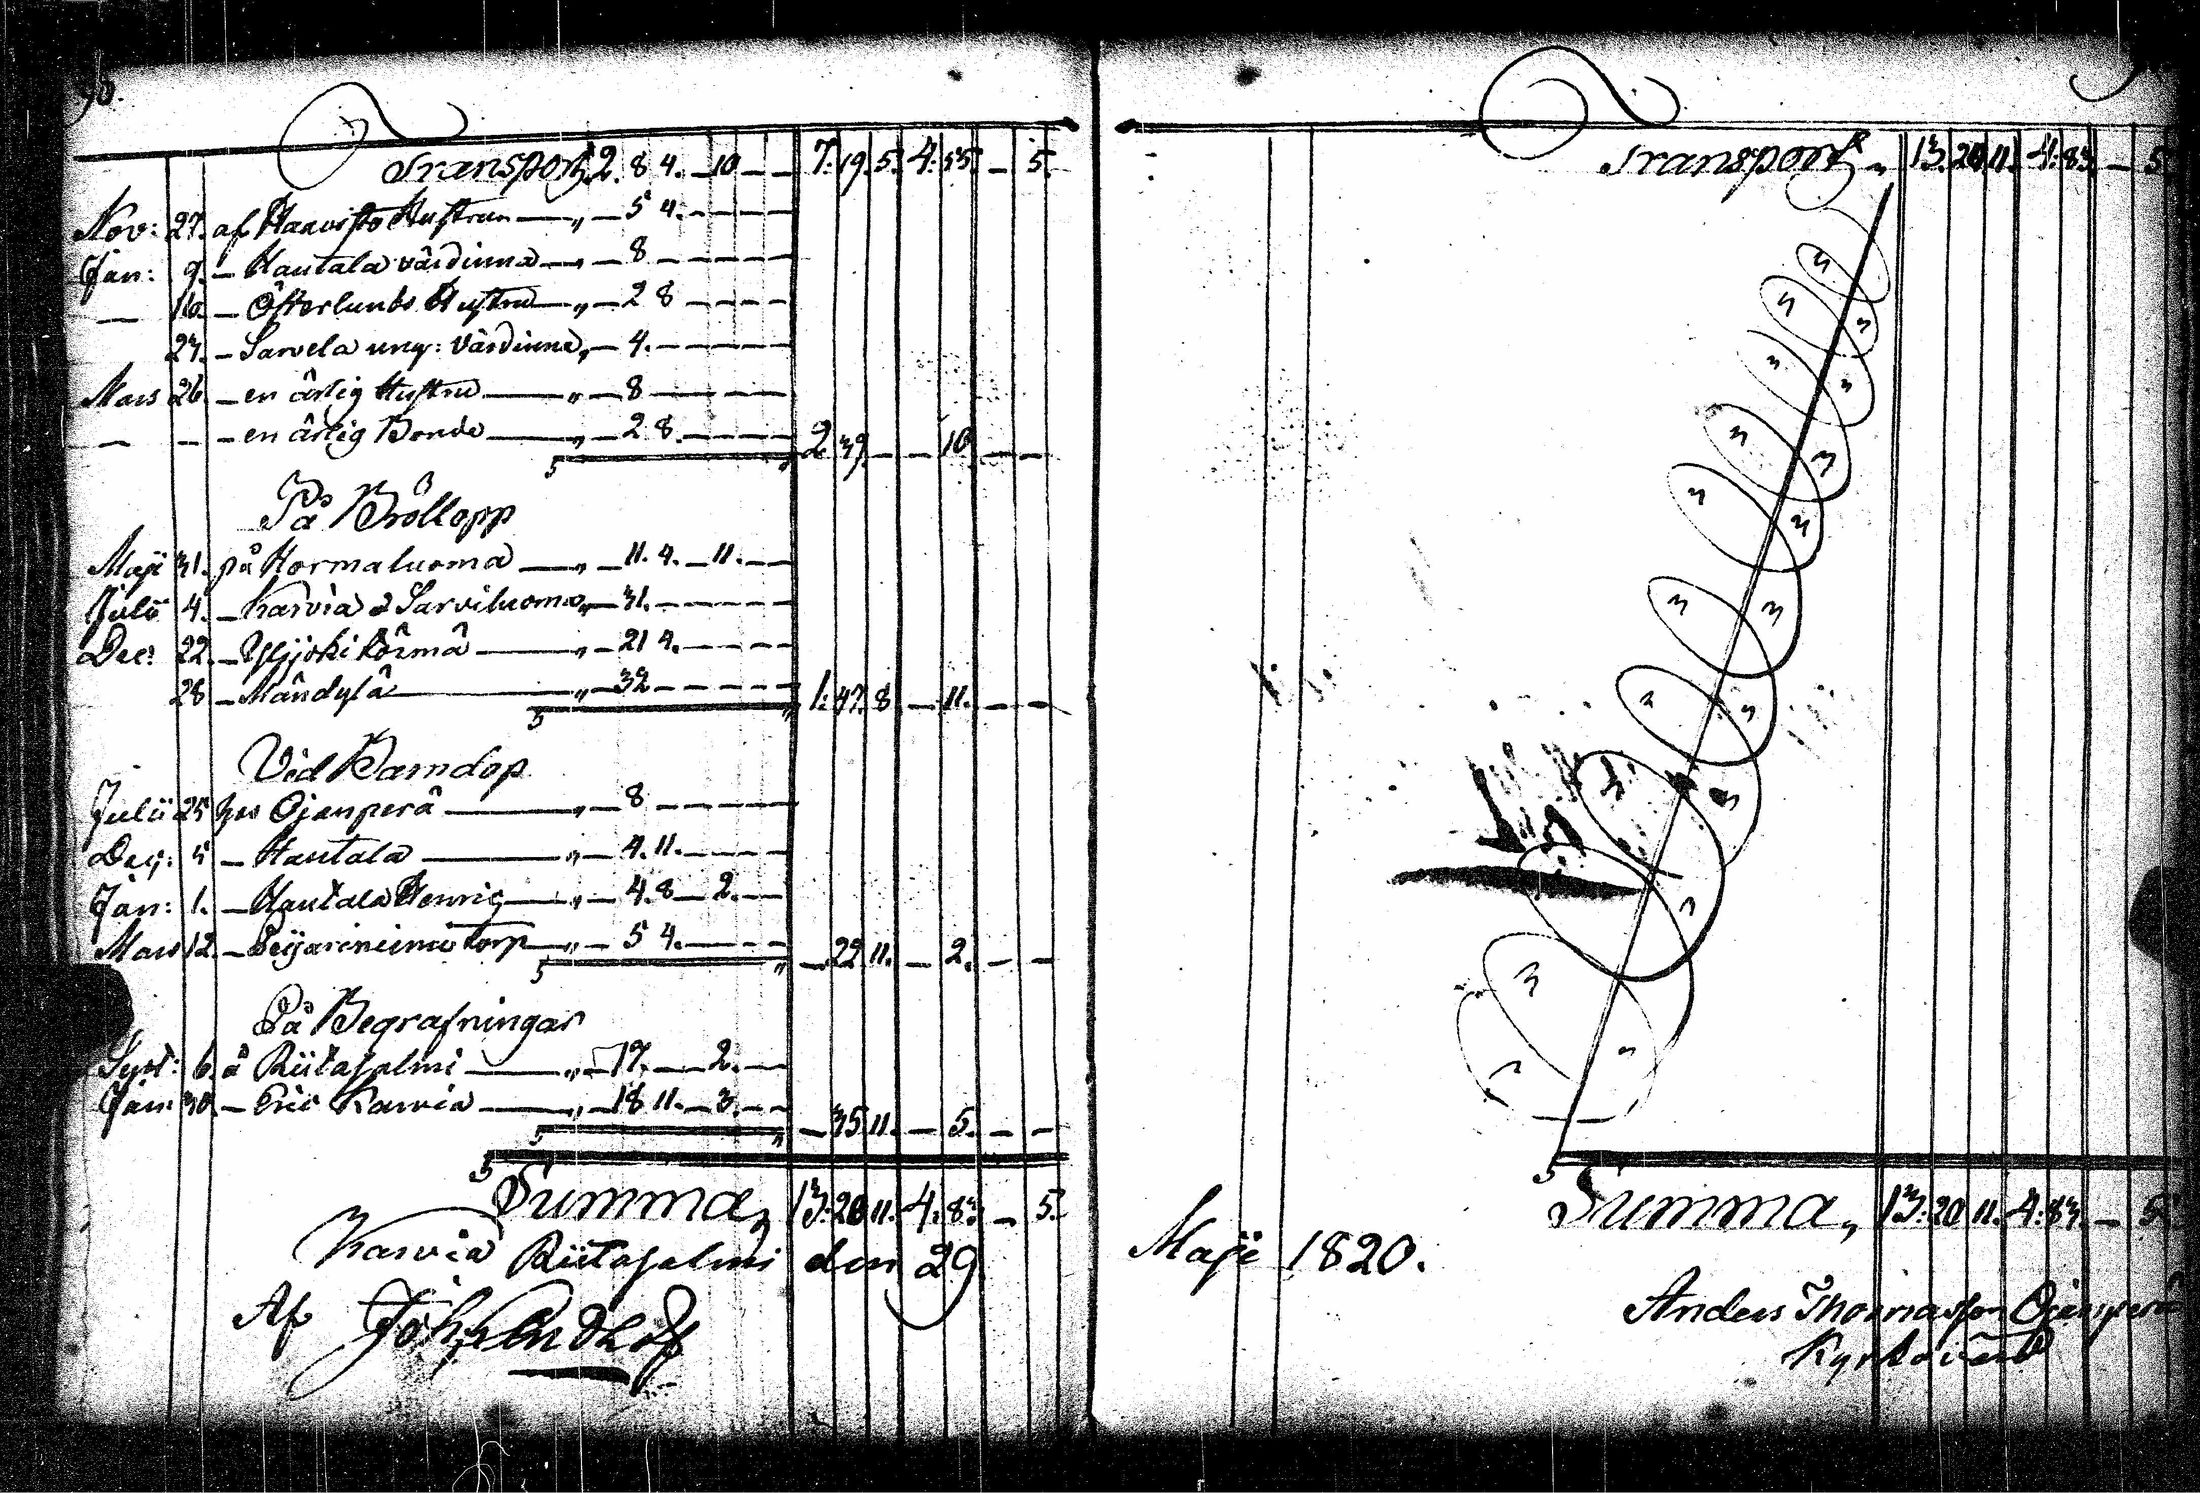 90.
Transport, 2. 8 4. — 10 — — 7. 19. 5. 4. 55. — 5.
Nov: 27. af Haavisto Hustrun — „ — 5 4. — — — —
Jan: 9. — Hautala värdinna — „ — 8 — — — —
— 16. — Österlunds Hustru — „ — 2 8 — — — —
23. — Sarvela ung: värdinna, — 4. — — — —
Mars 26. — en ärlig Hustru — „ — 8 — — — —
— — — en ärlig Bonde — „ — 2 8. — — — — 2. 39. — — 10. — —
På Bröllopp
Maji 31. på Hormaluoma — „ — 11. 4. — 11. — —
Julii 4. — Karvia Sarviluoma „ — 31. — — — —
Dec: 22. — Ylijoki — „ — 21 4. — — — —
28 — Mändylä — „ — 32 — — — — 1. 47. 8. — 11. — —
Vid Barndop
Julii 25 hos Ojanperä — „ — 8 — — — —
Dec: 5 — Hautala — „ — 4. 11. — — — —
Jan: 1. — Hautala Henric — „ — 4. 8 — 2. — —
Mars 12. — Torp — „ — 5 4. — — — — — 22. 11. — 2. — —
På Begrafningar
Sept: 6. å Riitasalmi — „ — 17. — 2. — —
Jan: 30. — Eric Karvia — „ — 18 11. — 3. — — — 35. 11. — 5. — —
Summa, 13. 20. 11. 4. 83. — 5.
Karvia Riitasalmi den 29
Af
Transport „ 13. 20. 11. 4. 83. — 5
Summa, 13. 20. 11. 4. 83. — 5.
Maji 1820.
Anders Thomasson Ojanperä
Kyrkovärd